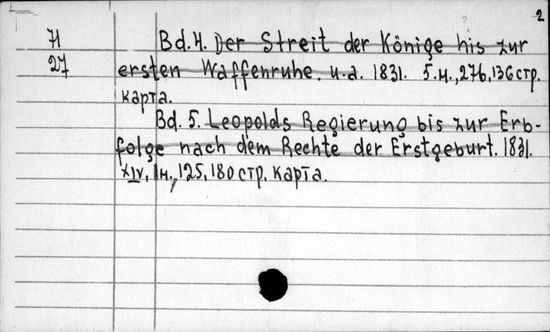 2
71 Bd.4. Der Streit der Könige his zur
27 ersten Waffenruhe. u.a. 1831. 5.н.,276,136 стр.
карта.
Bd. 5. Leopolds Regierung bis zur Erb-
folge nach dem Rechte der Erstgeburt. 1831.
XIV, 1н., 125, 180 стр. карта.